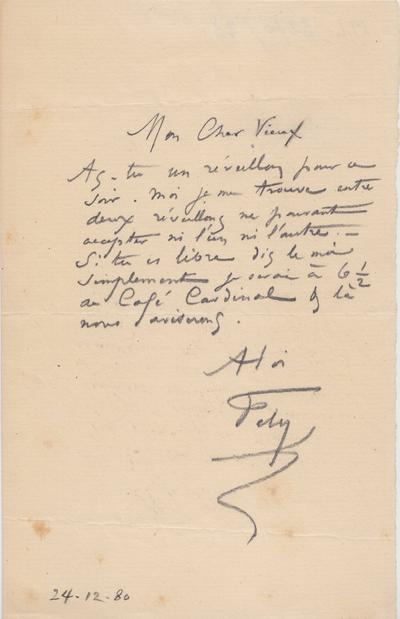 Mon Cher Vieux
As-tu un réveillon pour ce
soir. Moi je me trouve entre
deux réveillons ne pouvant
accepter ni l'un ni l'autre. —
Si tu es libre dis le moi
simplement je serai à 6 ½
au Café Cardinal & là
nous aviserons.
A toi
Fely
24-12-80